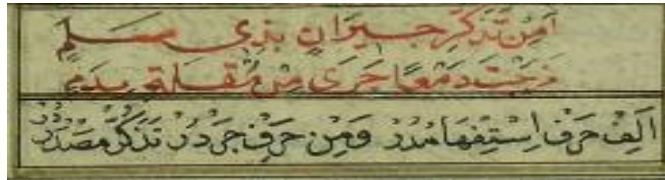 اَمِنْ تَذَكُّرِ جِيرَانٍ بِذِي سَلَمٍ
مَزَجْتَ دَمْعًا جَرَى مِنْ مُقْلَةٍ بِدَمِ
اَلِفْ حَرْفِ اِسْتِفْهَامْدُرْ وَمِنْ حَرْفِ جَرْدُرْ تَذَكُّرْ مَصْدَرْدُرْ